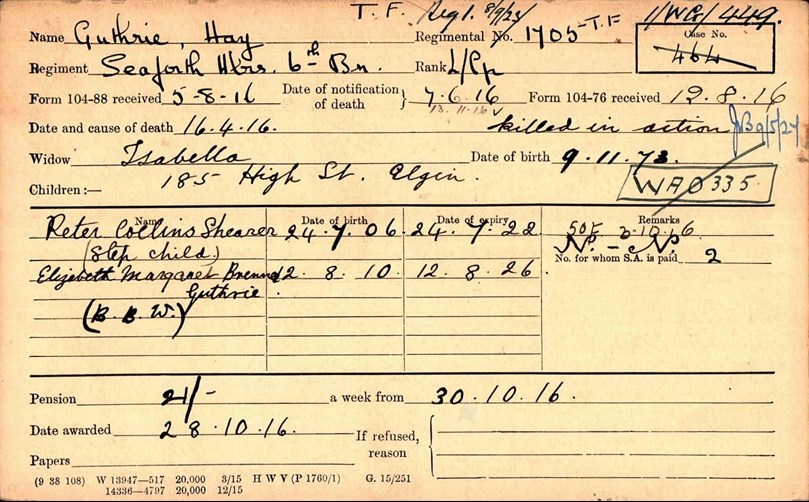 T. F. Reg 1. 8/9/23 1/WG/449.
Name Guthrie, Hay Regimental No. 1705 - T.F Case No.
464
Regiment Seaforth Hdrs. 6th Bn. Rank L/Cp
Form 104-88 received 5-8-16 Date of notification of death } 7.6.16 Form 104-76 received 12.8.16
13.11.16
Date and cause of death 16.4.16. killed in action
Widow Isabella Date of birth 9.11.73.
Children:— 185 High St. Elgin. WAO335.
Name Date of birth Date of expiry Remarks
Peter Collins Shearer 24.7.06. 24.7.22 3.10.16
(Step child) No. for whom S.A. is paid 2
Elizabeth Margaret 12.8.10. 12.8.26.
Guthrie
(B.B.W.)
Pension 21/- a week from 30.10.16.
Date awarded 28.10.16. If refused, reason
Papers
(9 38 108) W 13947—517 20,000 3/15 H W V (P 1760/1) G. 15/251
14336—4797 20,000 12/15